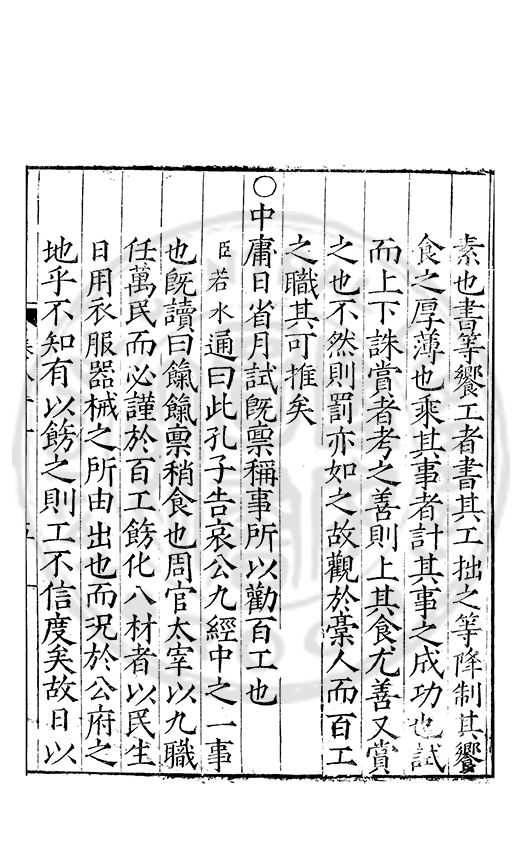 素也書等饗工者書其工拙之等降制其饗
食之厚薄也乘其事者計其事之成功也試
而上下誅賞者考之善則上其食尤善又賞
之也不然則罰亦如之故觀於稾人而百工
之職其可推矣
○中庸日省月試旣稟稱事所以勸百工也
臣若水通曰此孔子告哀公九經中之一事
也旣讀曰餼餼稟稍食也周官太宰以九職
任萬民而必謹於百工飭化八材者以民生
日用衣服器械之所由出也而况於公府之
地乎不知有以飭之則工不信度矣故日以